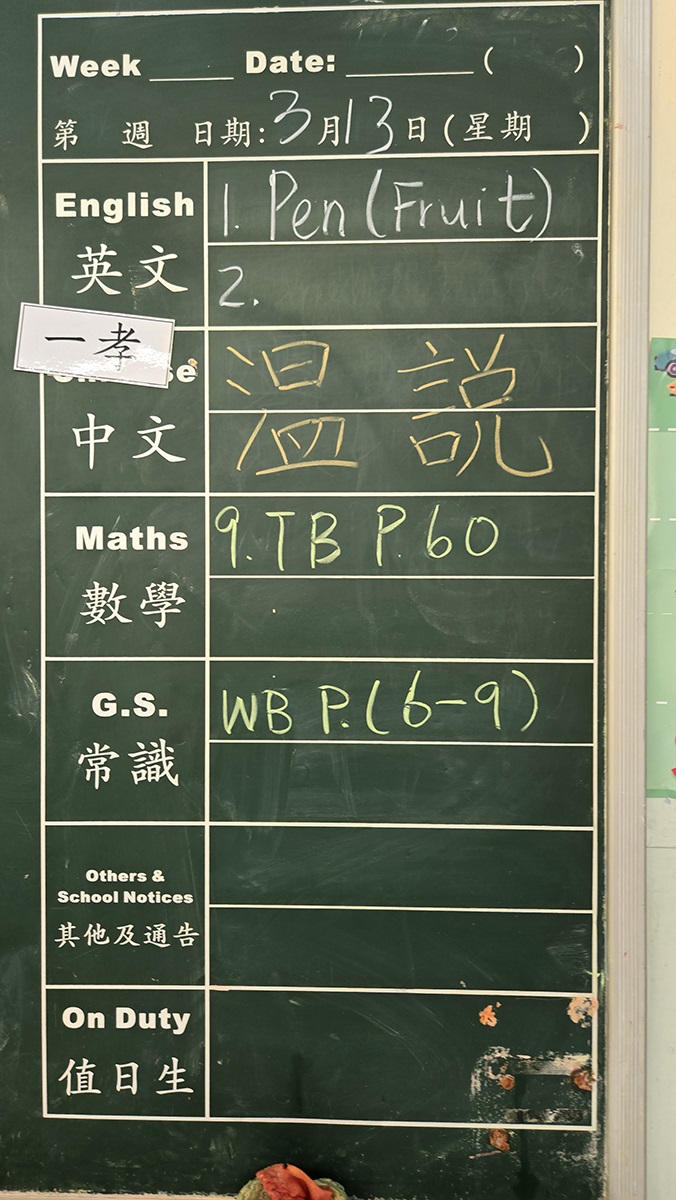 Week _____ Date: ________ (      )
第 週 日期: 3月13日(星期 )
English
英文
1. Pen (Fruit)
2.
一孝
se
中文
溫 說
Maths
數學
9. TB P. 60
G.S.
常識
WB P. (6-9)
Others &
School Notices
其他及通告
On Duty
值日生